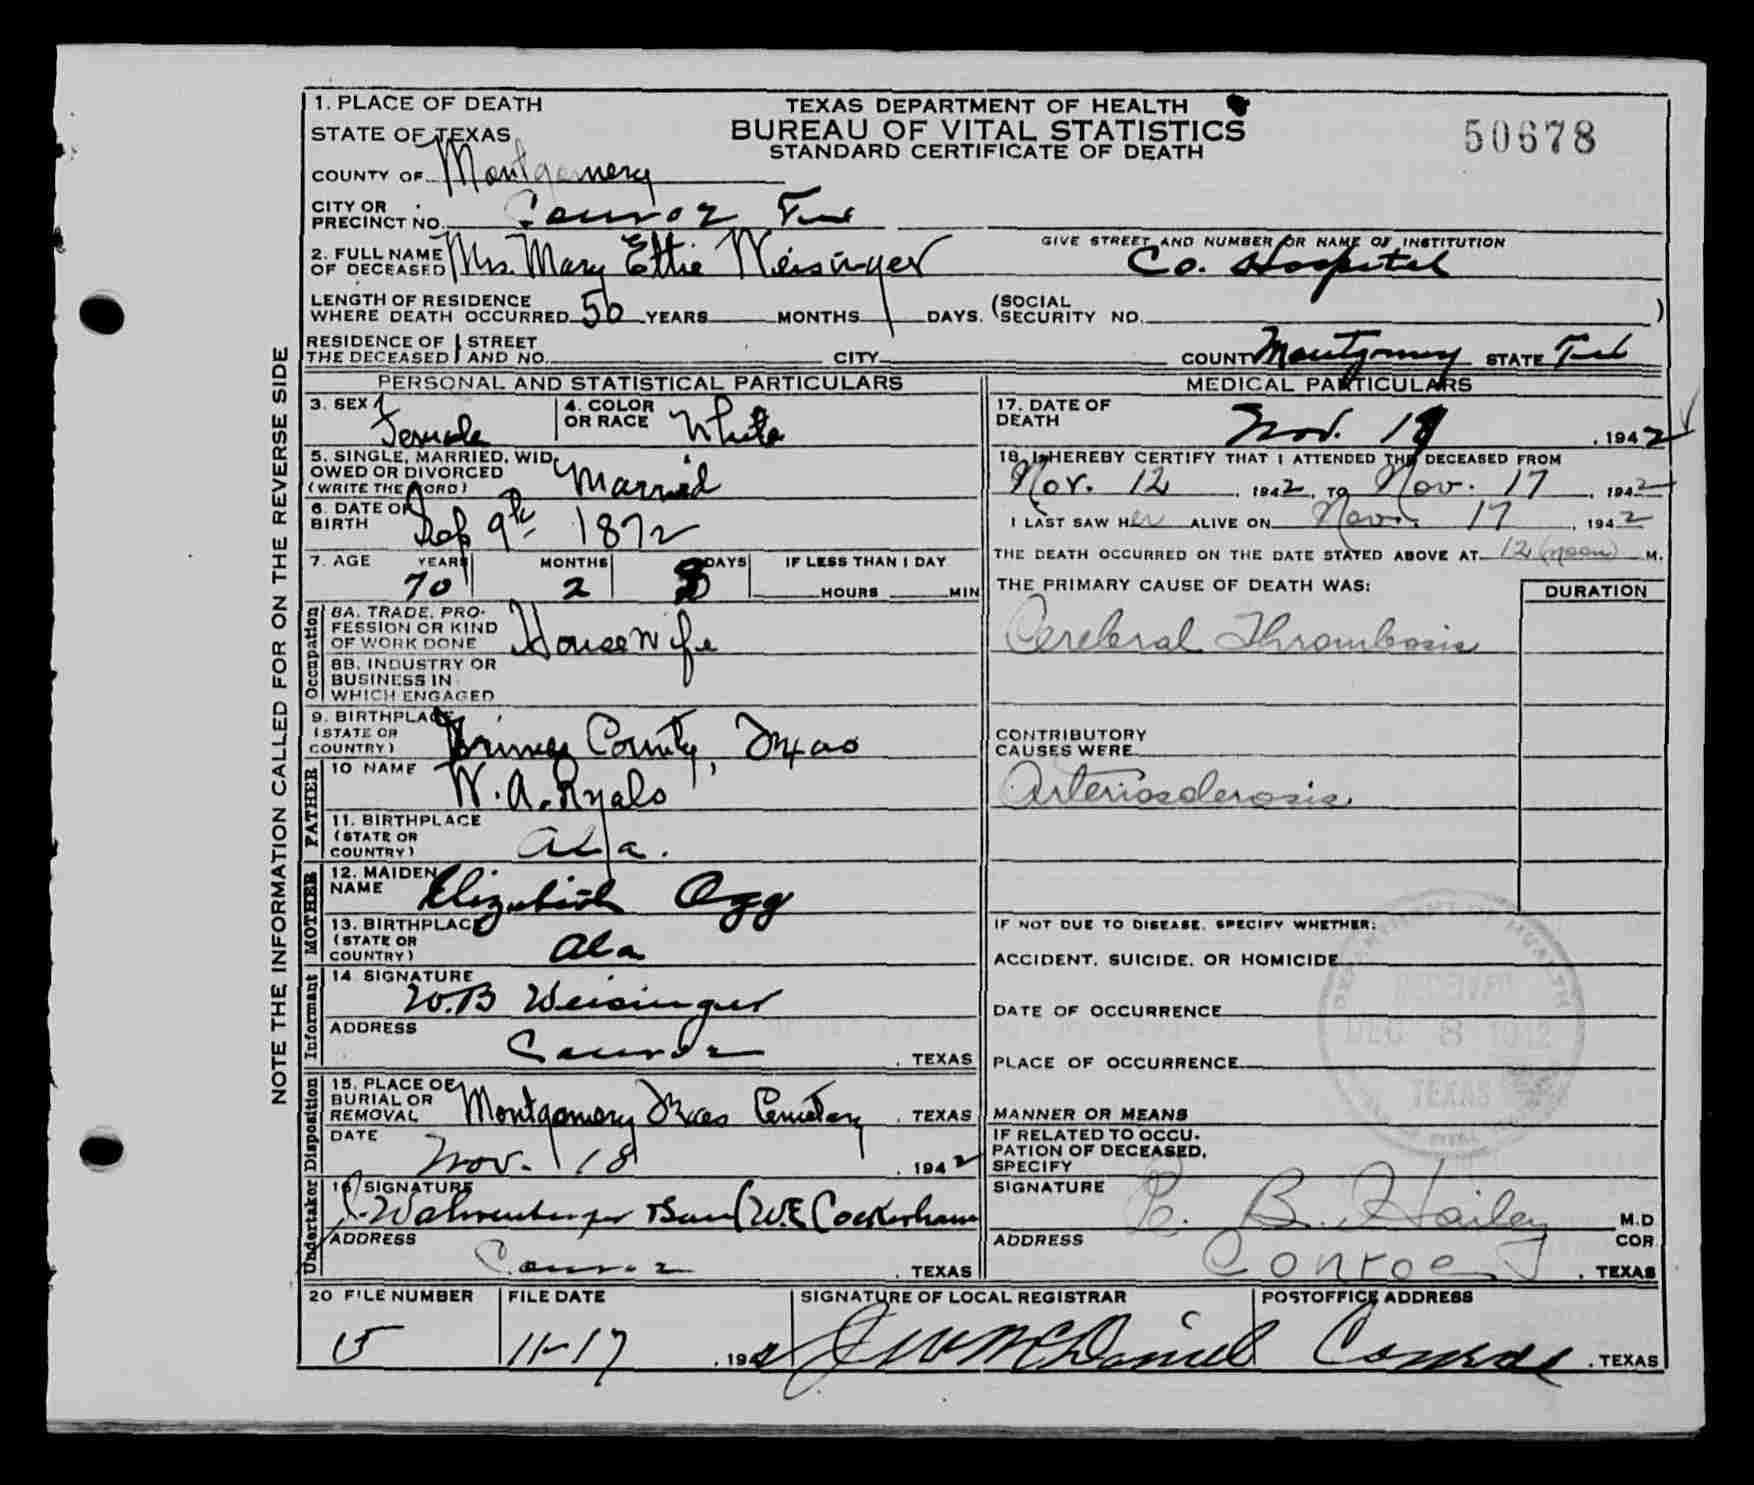 1. PLACE OF DEATH
TEXAS DEPARTMENT OF HEALTH
BUREAU OF VITAL STATISTICS
STANDARD CERTIFICATE OF DEATH
50678
STATE OF TEXAS
COUNTY OF Montgomery
CITY OR PRECINCT NO. Conroe Tex
GIVE STREET AND NUMBER OR NAME OF INSTITUTION
2. FULL NAME OF DECEASED Mrs. Mary Ettie Weisinger Co. Hospital
LENGTH OF RESIDENCE WHERE DEATH OCCURRED 50 YEARS MONTHS DAYS. (SOCIAL SECURITY NO. )
RESIDENCE OF THE DECEASED STREET AND NO. CITY COUNTY Montgomery STATE Tex
PERSONAL AND STATISTICAL PARTICULARS
3. SEX Female 4. COLOR OR RACE White
5. SINGLE, MARRIED, WIDOWED OR DIVORCED (WRITE THE WORD) Married
6. DATE OF BIRTH Sep 9th 1872
7. AGE YEARS 70 MONTHS 2 DAYS IF LESS THAN 1 DAY HOURS MIN
Occupation
8A. TRADE, PROFESSION OR KIND OF WORK DONE Housewife
8B. INDUSTRY OR BUSINESS IN WHICH ENGAGED
9. BIRTHPLACE (STATE OR COUNTRY) Grimes County, Texas
FATHER
10 NAME W. A. Ryals
11. BIRTHPLACE (STATE OR COUNTRY) Ala.
MOTHER
12. MAIDEN NAME Elizabeth Ogg
13. BIRTHPLACE (STATE OR COUNTRY) Ala
Informant
14 SIGNATURE W.B Weisinger
ADDRESS Conroe , TEXAS
Disposition
15. PLACE OF BURIAL OR REMOVAL Montgomery Texas Cemetery , TEXAS
DATE Nov. 18 , 1942
Undertaker
16 SIGNATURE J. Wahrenberger & Son (W.E Cockerham
ADDRESS Conroe , TEXAS
MEDICAL PARTICULARS
17. DATE OF DEATH Nov. , 1942
18. I HEREBY CERTIFY THAT I ATTENDED THE DECEASED FROM
Nov. 12 , 1942, TO Nov. 17 , 1942
I LAST SAW HER ALIVE ON Nov. 17 , 1942
THE DEATH OCCURRED ON THE DATE STATED ABOVE AT 12 (noon) M.
THE PRIMARY CAUSE OF DEATH WAS: DURATION
Cerebral Thrombosis
CONTRIBUTORY CAUSES WERE
Arteriosclerosis
IF NOT DUE TO DISEASE, SPECIFY WHETHER:
ACCIDENT, SUICIDE, OR HOMICIDE
DATE OF OCCURRENCE
PLACE OF OCCURRENCE
MANNER OR MEANS
IF RELATED TO OCCUPATION OF DECEASED, SPECIFY
SIGNATURE B. Hailey M.D
COR
ADDRESS Conroe , TEXAS
DEPARTMENT OF HEALTH
RECEIVED
DEC 8 1942
TEXAS
20 FILE NUMBER 15 FILE DATE 11-17 , 1942 SIGNATURE OF LOCAL REGISTRAR J W McDaniel POSTOFFICE ADDRESS Conroe , TEXAS
NOTE THE INFORMATION CALLED FOR ON THE REVERSE SIDE